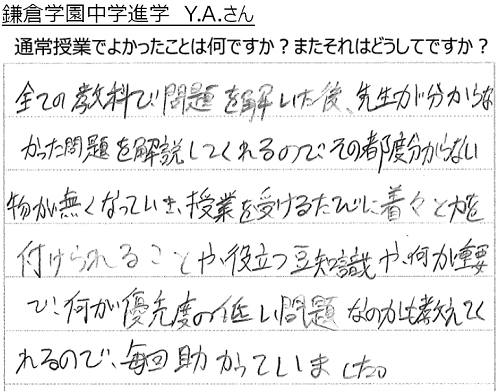 鎌倉学園中学進学　Y.A.さん
通常授業でよかったことは何ですか？またそれはどうしてですか？
全ての教科で問題を解いた後、先生が分からな
かった問題を解説してくれるのでその都度分からない
物が無くなっていき、授業を受けるたびに着々と力を
付けられることや役立つ豆知識や、何が重要
で、何が優先度の低い問題なのかも教えてく
れるので、毎回助かっていました。